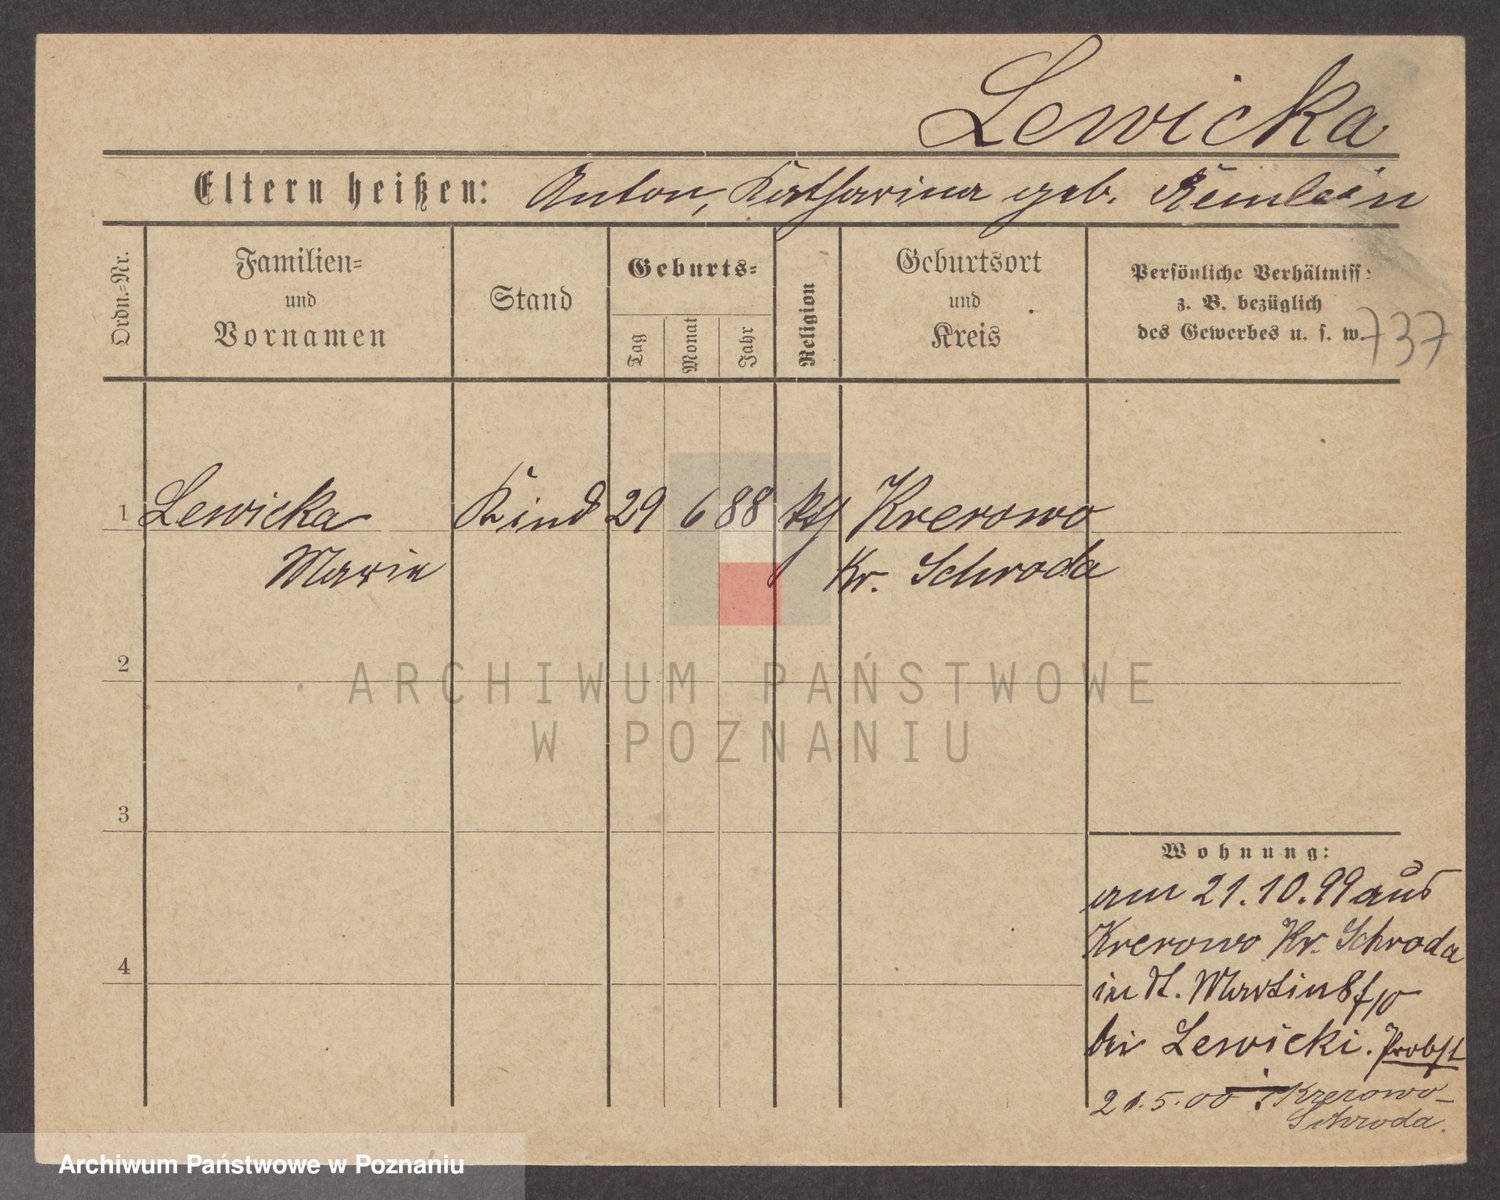 Lewicka
Eltern heißen: Anton, Katharina geb.
Ordn.=Nr.
Familien=
und
Vornamen
Stand
Geburts=
Tag
Monat
Jahr
Religion
Geburtsort
und
Kreis
Persönliche Verhältniss:
z. B. bezüglich
des Gewerbes u. s. w.
737
1 Lewicka Kind 29 6 88 Krerowo
Marie Kr. Schroda
2
3
4
Wohnung:
am 21.10.99 aus
Krerowo Kr. Schroda
in St. Martin
bei Lewicki. Probst
21.5.00 Krerowo-
Schroda.
ARCHIWUM PAŃSTWOWE
W POZNANIU
Archiwum Państwowe w Poznaniu